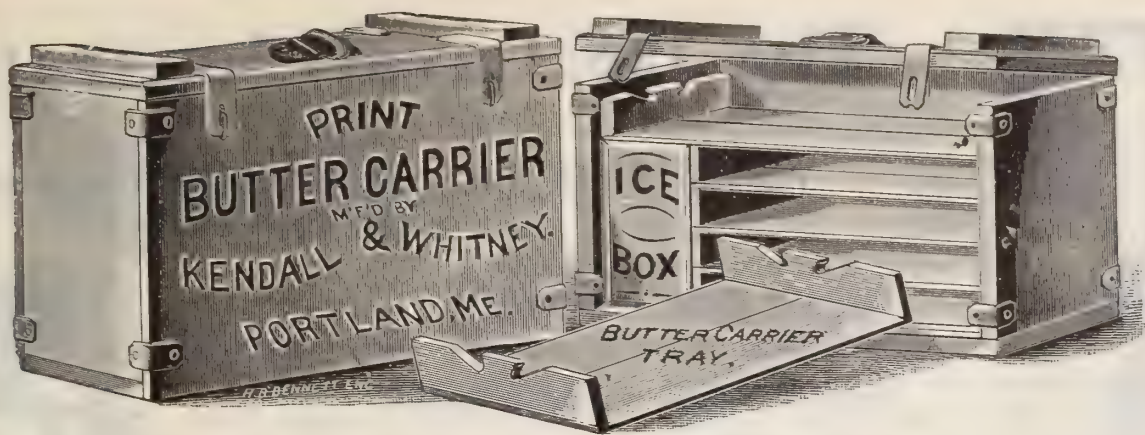 PRINT
BUTTER CARRIER
M'F'D BY
KENDALL & WHITNEY.
PORTLAND, ME.
H.R. BENNETT ENG
ICE
BOX
BUTTER CARRIER
TRAY.